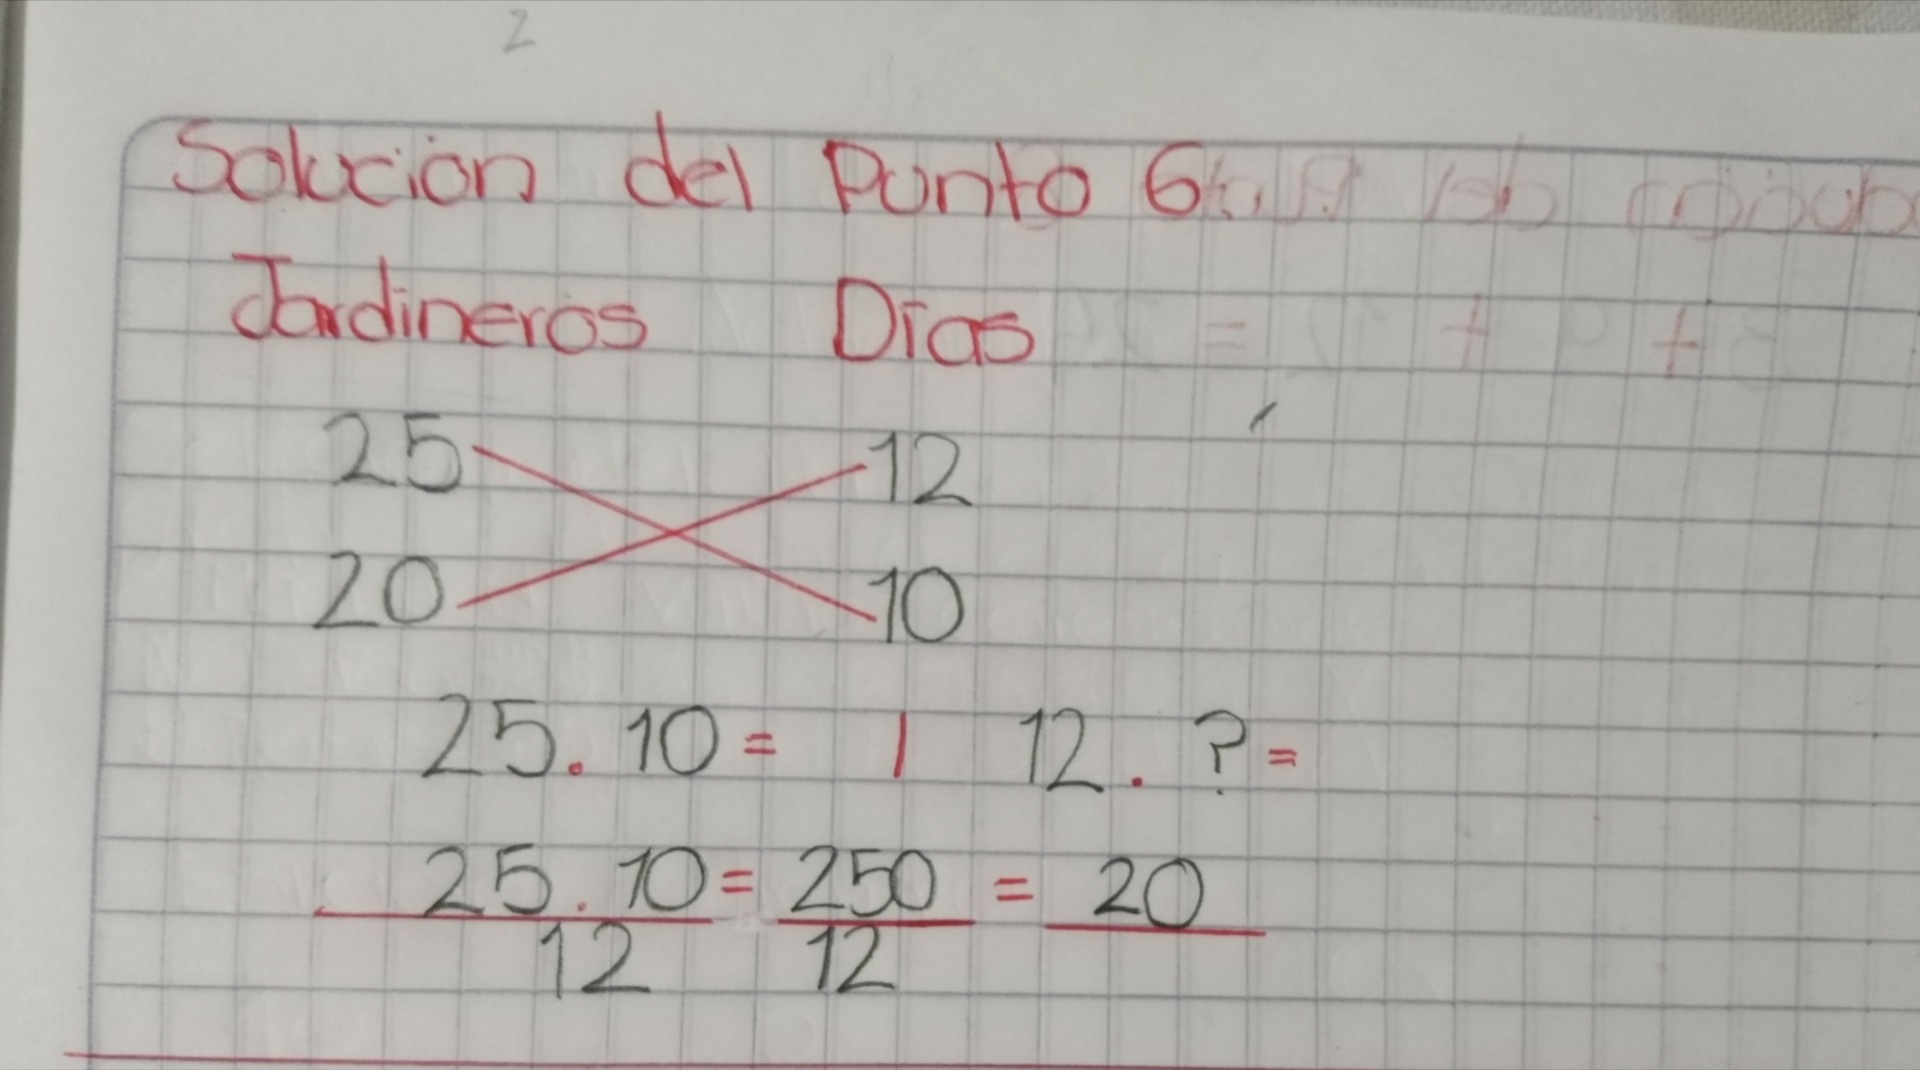 2
Solución del Punto 6
Jardineros Días
25 12
20 10
25. 10 = | 12. ? =
25. 10 = 250 = 20
12 12